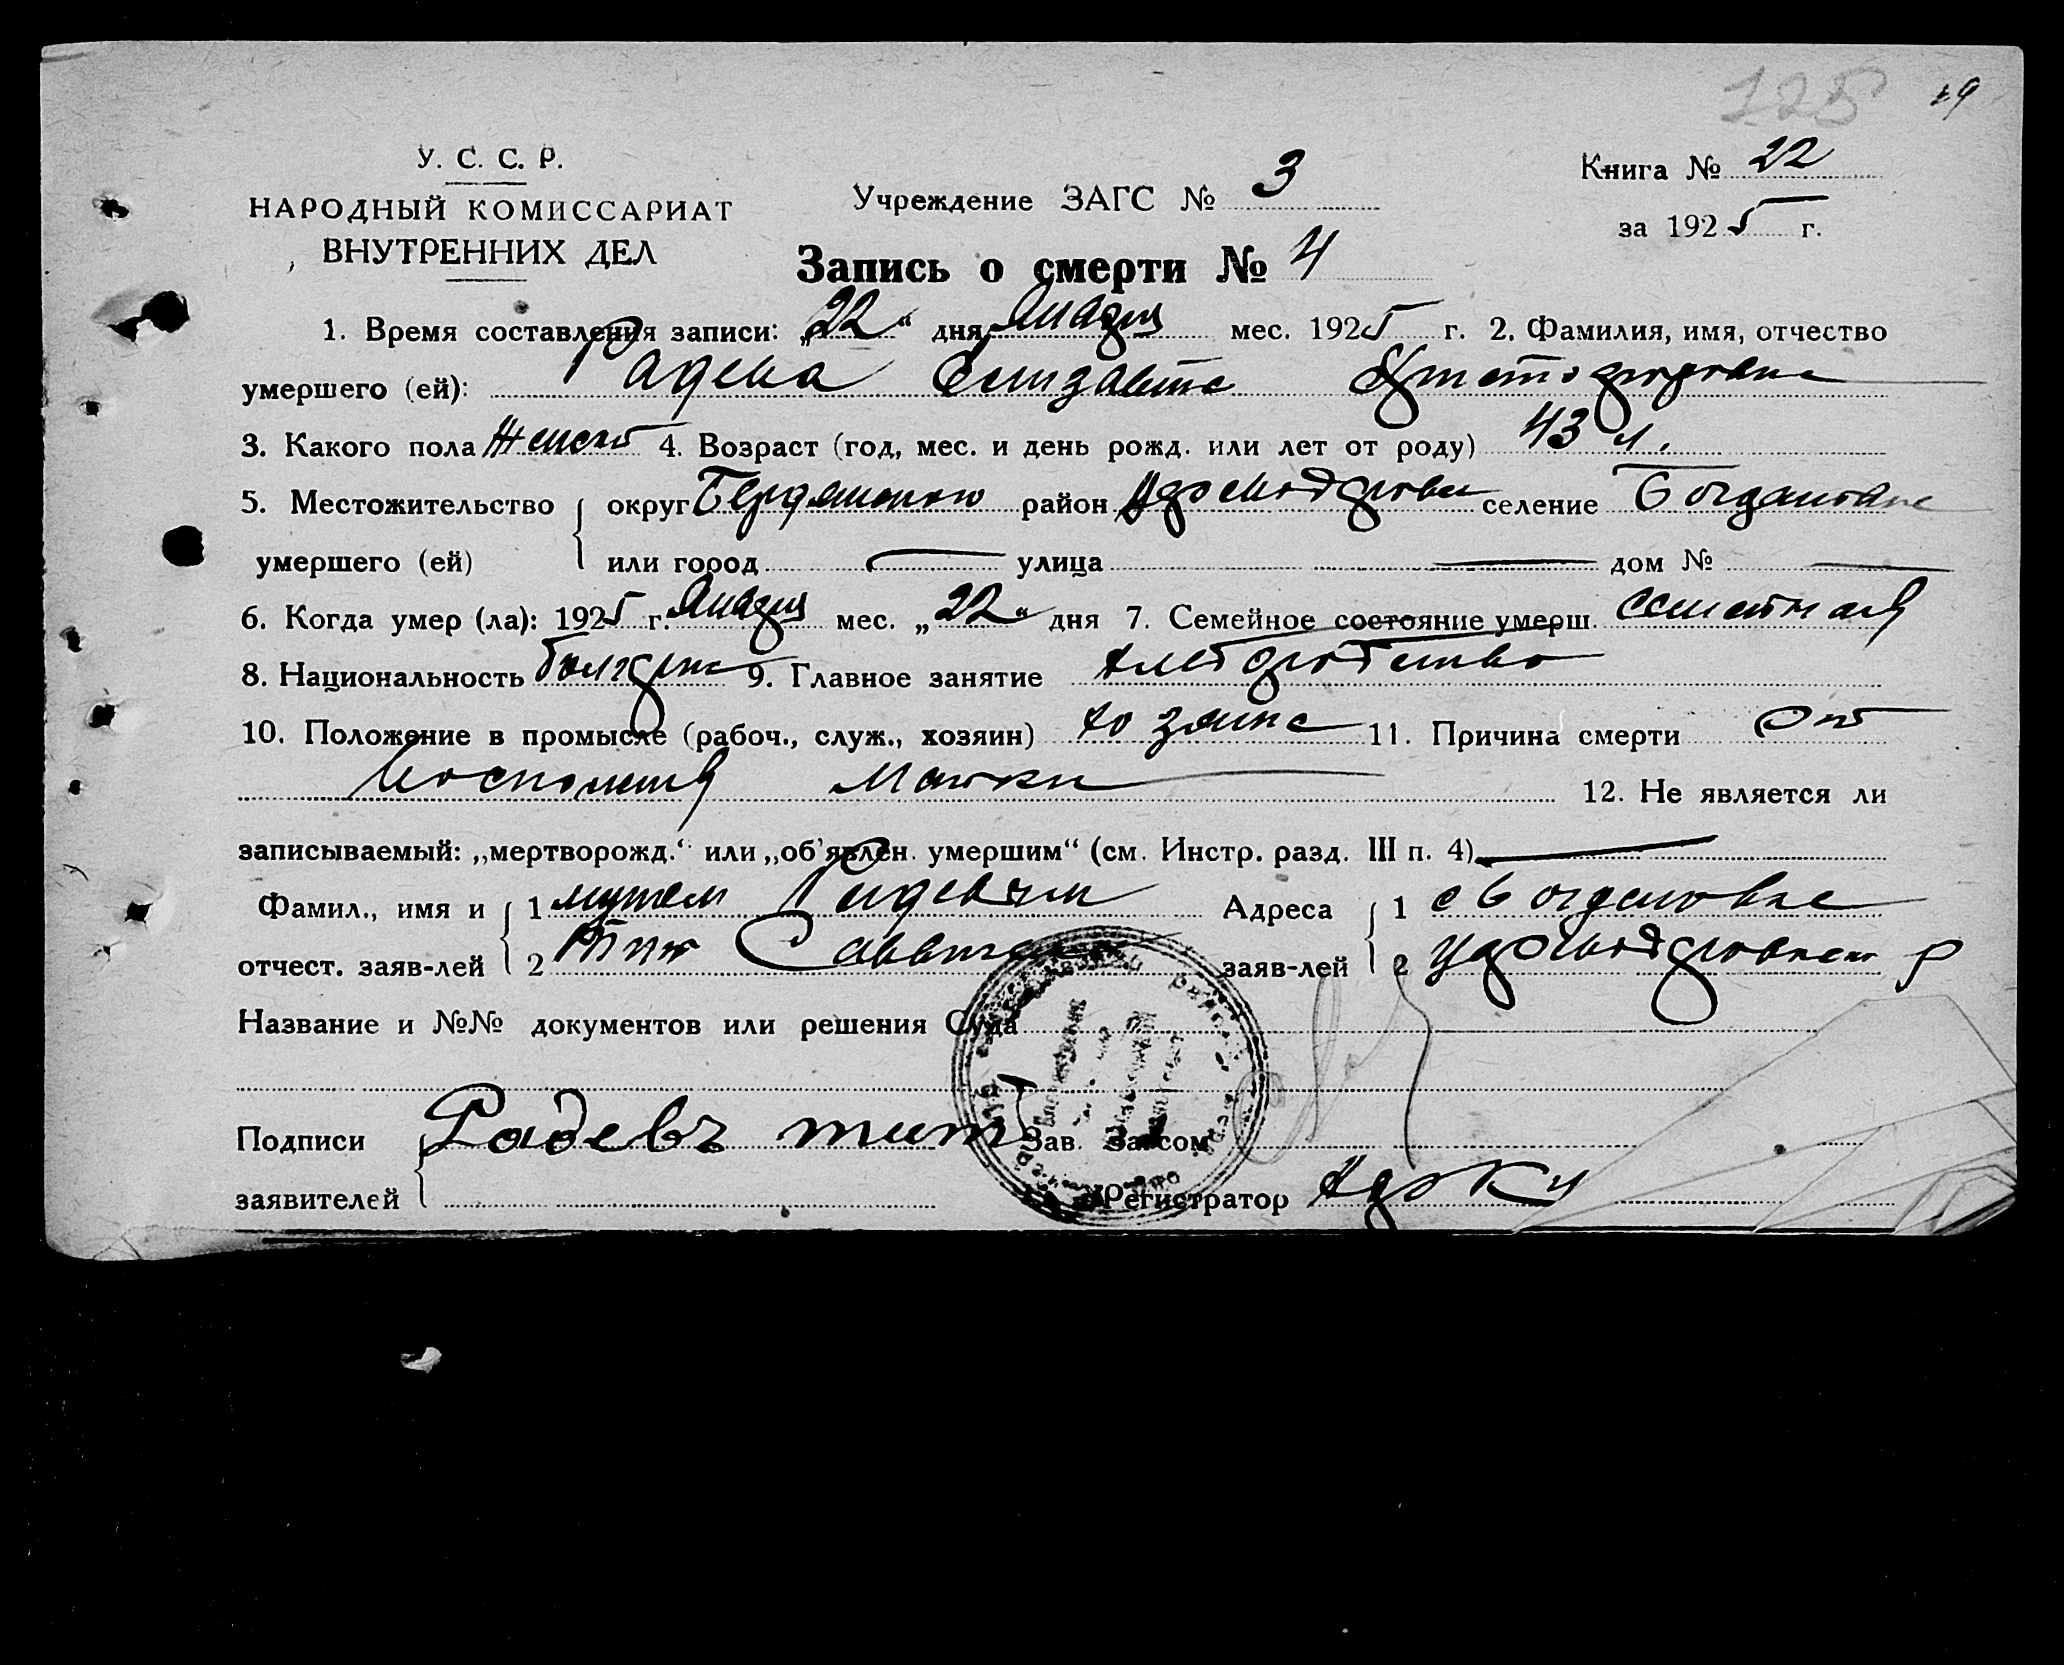 125 19
У. С. С. Р.
НАРОДНЫЙ КОМИССАРИАТ
ВНУТРЕННИХ ДЕЛ
Учреждение ЗАГС № 3
Книга № 22
за 1925 г.
Запись о смерти № 4
1. Время составления записи: „22“ дня Января мес. 1925 г. 2. Фамилия, имя, отчество
умершего (ей): Радева Елизавета
3. Какого пола Женско 4. Возраст (год, мес. и день рожд. или лет от роду) 43 л.
5. Местожительство округ Бердянского район селение Богдановка
умершего (ей) или город — улица — дом № —
6. Когда умер (ла): 1925 г. Января мес. „22“ дня 7. Семейное состояние умерш. семейная
8. Национальность болгарка 9. Главное занятие хлеборобство
10. Положение в промысле (рабоч., служ., хозяин) хозяйка 11. Причина смерти От
Воспаления матки 12. Не является ли
записываемый: „мертворожд.“ или „об'явлен. умершим“ (см. Инстр. разд. III п. 4) —
Фамил., имя и 1 мужем Радевым Адреса 1 с Богдановке
отчест. заяв-лей 2 заяв-лей 2 р
Название и №№ документов или решения Суда
Подписи Радевъ тит Зав. Загсом
заявителей Регистратор